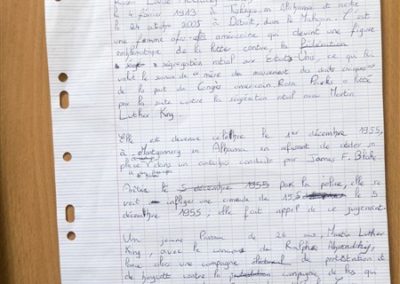 le 4 février 1913 à Tuskegee en Alabama et morte
le 24 octobre 2005 à Détroit, dans le Michigan. C'est
une femme afro américaine qui devint une figure
emblématique de la lutte contre la
ségrégation racial aux Etats-Unis, ce qui lui
valut le surnom de "mère du mouvement des droits civiques"
de la part du Congrès américain. Rosa Parks a lutté
par la suite contre la ségrégation racial avec Martin
Luther King.
Elle est devenue célèbre le 1er décembre 1955,
à Montgomery en Alabama en refusant de céder sa
place dans un autobus conduit par James F. Blake.
Arrêtée le 5 décembre 1955 par la police, elle se
voit infliger une amende de 15 le 5
décembre 1955, elle fait appel de ce jugement.
Un jeune Pasteur de 26 ans, Martin Luther
King, avec le concours de Ralph Abernathy,
lance alors une campagne de protestation et
de boycott contre la compagne de bus qui